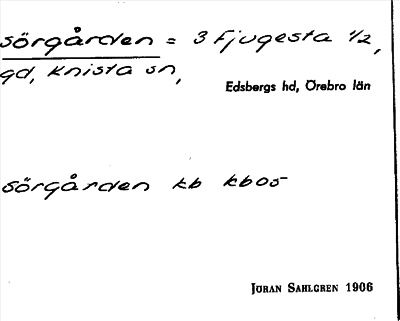 sörgården = 3 Fjugesta 1/2,
gd, Knista sn,
Edsbergs hd, Örebro län
sörgården kb kb05
Jöran Sahlgren 1906